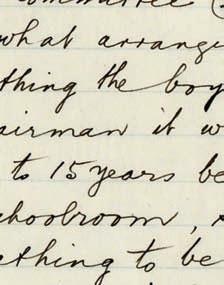 ommittee
what arrange
thing the boy
airman it w
to 15 years be
choolroom,
ething to be